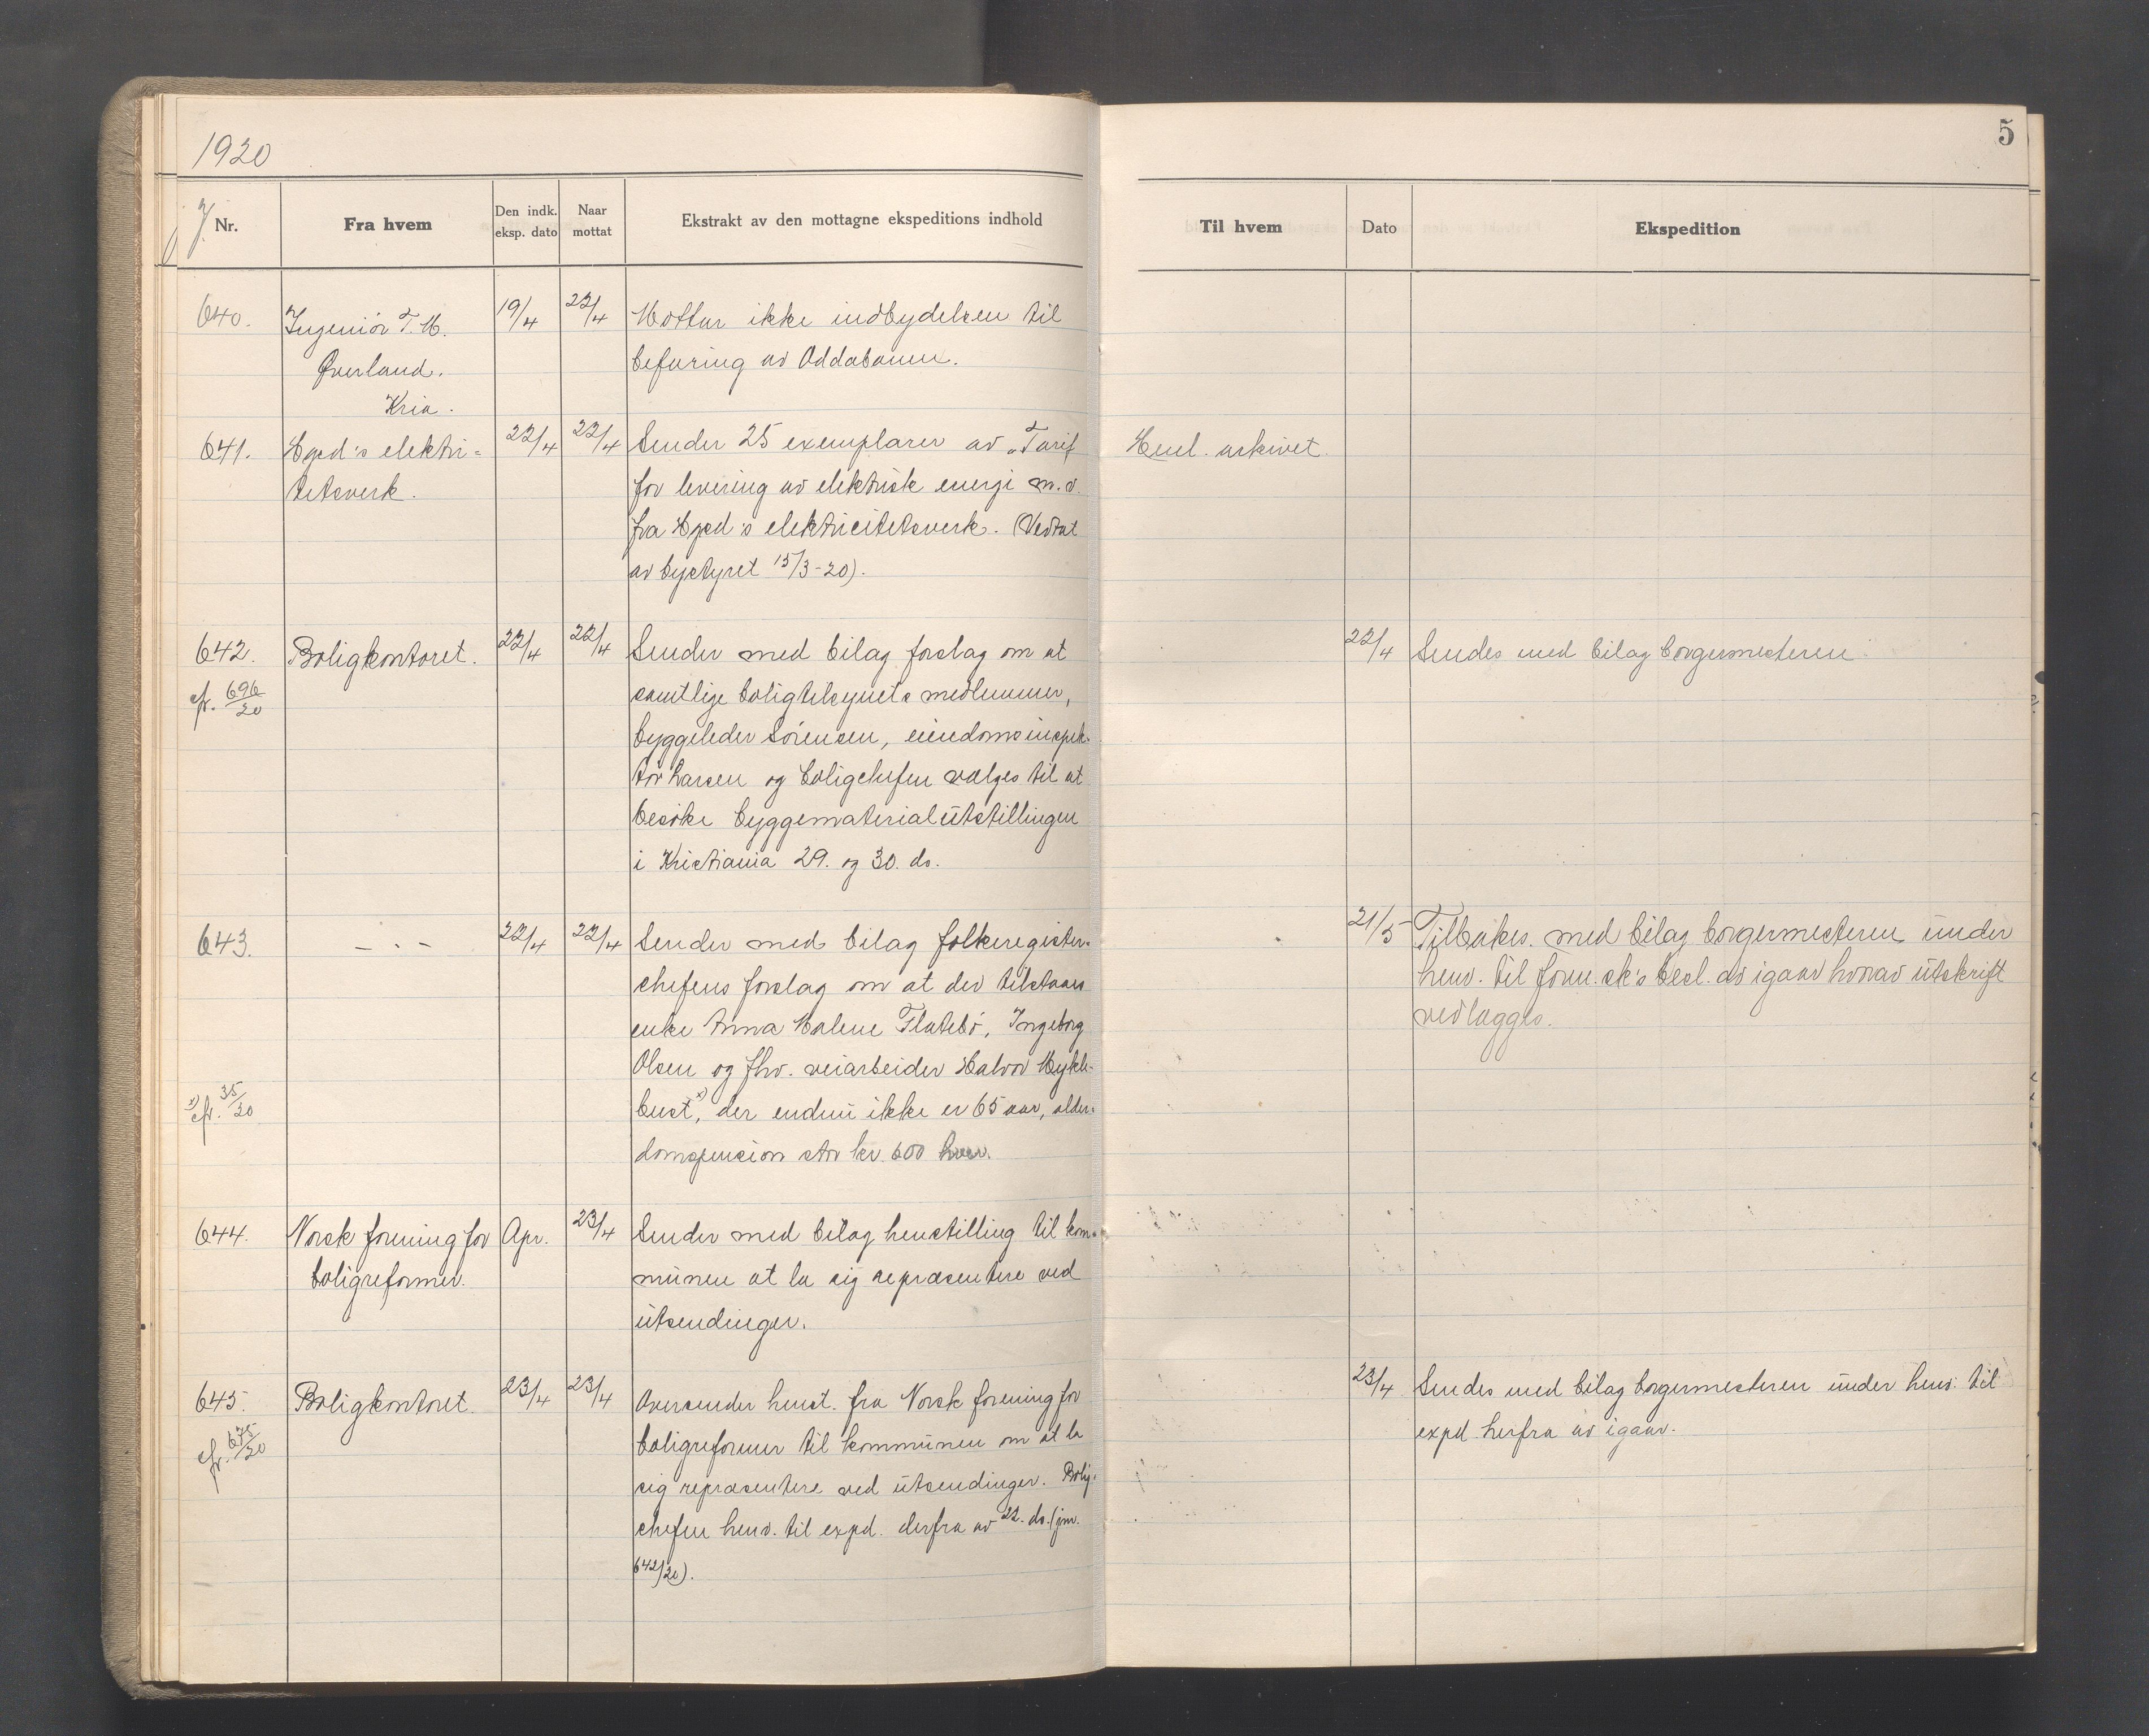 1920
J. Nr.
Fra hvem
Den indk. eksp. dato
Naar mottat
Ekstrakt av den mottagne ekspeditions indhold
640.
Ingeniör T. M.
Øverland.
Kria.
19/4
22/4
Mottar ikke indbydelsen til
befaring av Oddabanen.
641.
Hgsd's elektri-
tetsverk.
22/4
22/4
Sender 25 exemplarer av "Tarif
for levering av elektrisk energi m.v.
fra Hgsd's elektricitetsverk. (Vedtat
av bystyret 15/3-20).
642.
cfr. 696/20
Boligkontoret.
22/4
22/4
Sender med bilag forslag om at
samtlige boligtilsynets medlemmer,
byggeleder Sörensen, eiendomsinspek-
tör Larsen og boligchefen vælges til at
besöke byggematerialutstillingen
i Kristiania 29. og 30. ds.
643.
— . —
22/4
22/4
Sender med bilag folkeregister-
chefens forslag om at der tilstaaes
enke Anna Malene Flatebö, Ingeborg
Olsen og fhv. veiarbeider Halvor Mykle-
bust x), der endnu ikke er 65 aar, alder-
domspension stor kr. 600 hver.
x) cfr. 35/20
644.
Norsk forening for
boligreformer.
Apr.
23/4
Sender med bilag henstilling til kom-
munen at la sig repræsentere ved
utsendinger.
645.
cfr. 675/20
Boligkontoret.
23/4
23/4
Oversender henst. fra Norsk forening for
boligreformer til kommunen om at la
sig repræsentere ved utsendinger. Bolig-
chefen henv. til expd. derfra av 22. ds. (jnr.
642/20).
5
Til hvem
Dato
Ekspedition
Henl. arkivet.
22/4
Sendes med bilag borgermesteren
21/5
Tilbakes. med bilag borgermesteren under
henv. til form.sk's besl. av igaar hvorav utskrift
vedlægges.
23/4
Sendes med bilag borgermesteren under henv. til
expd. herfra av igaar.